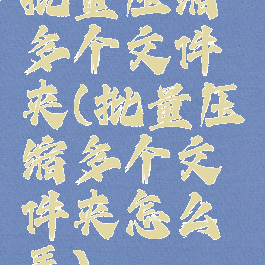 批量压缩
多个文件
夹(批量压
缩多个文
件夹怎么
弄)